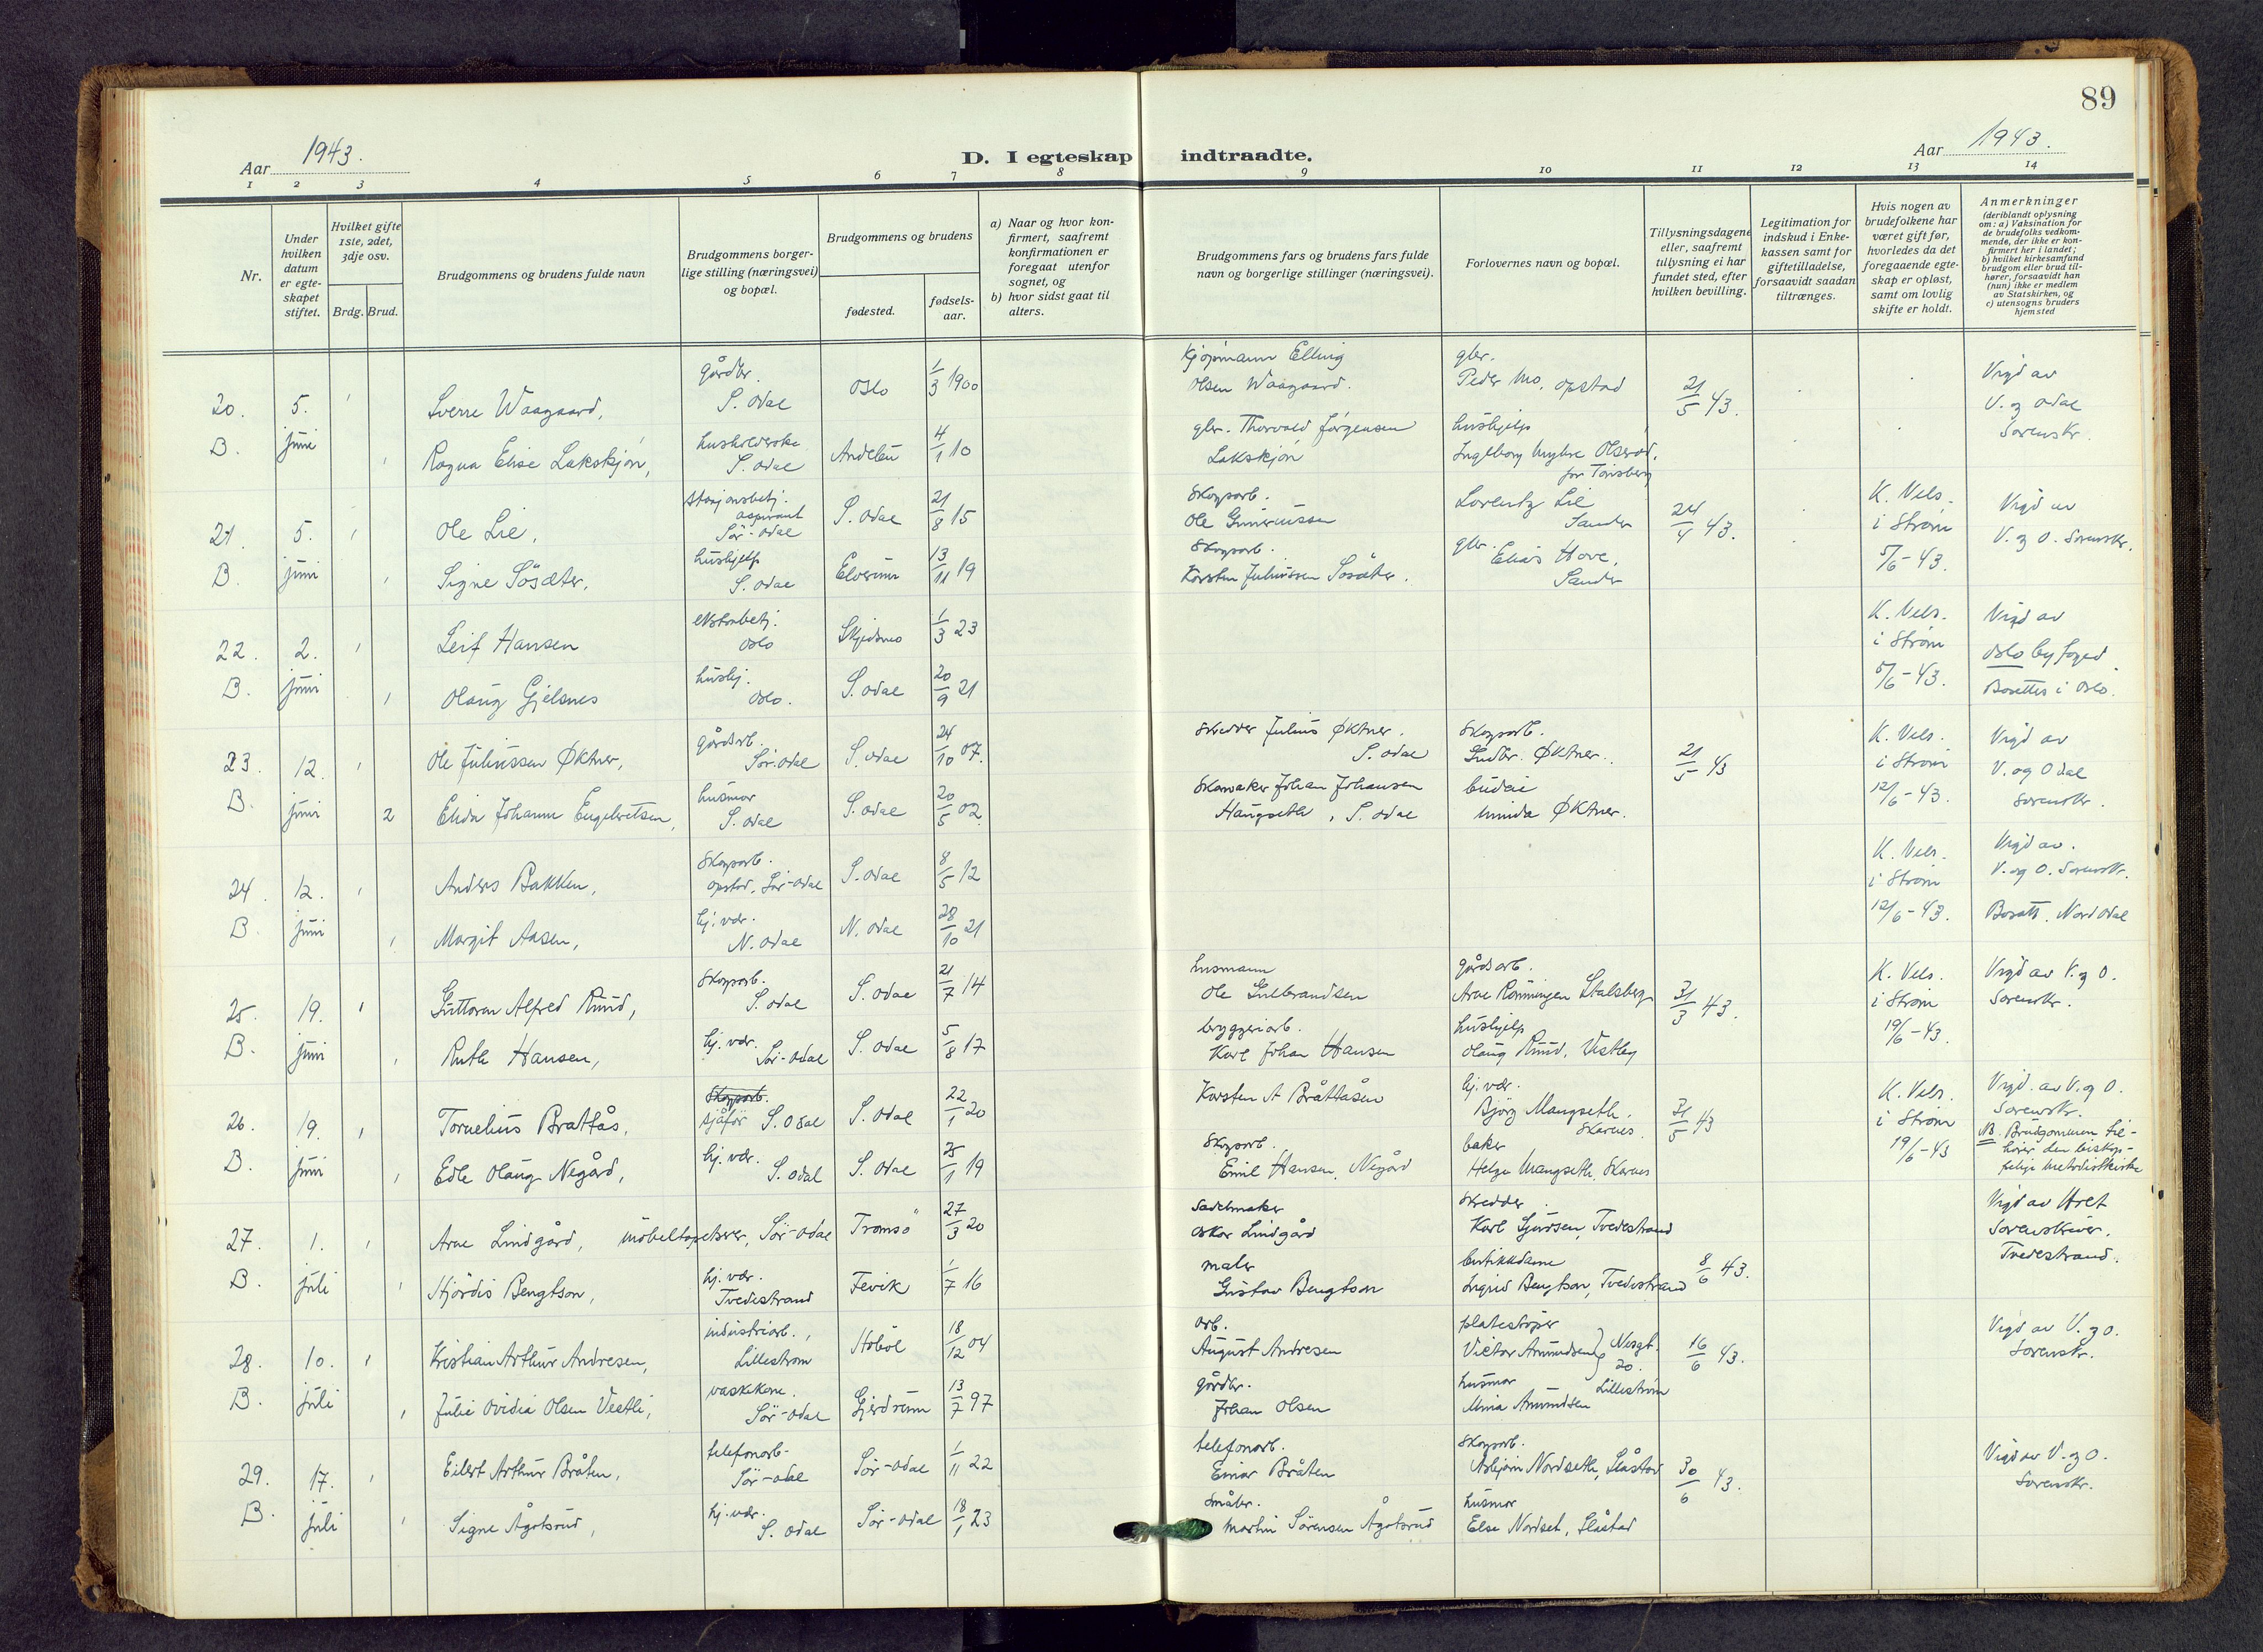 89
Aar 1943.
D. I egteskap indtraadte.
Aar 1943.
1 2 3 4 5 6 7 8 9 10 11 12 13 14
Nr.
Under hvilken datum er egte-skapet stiftet.
Hvilket gifte 1ste, 2det, 3dje osv.
Brdg. Brud.
Brudgommens og brudens fulde navn
Brudgommens borger-lige stilling (næringsvei) og bopæl.
Brudgommens og brudens
fødested.
fødsels-aar.
a) Naar og hvor kon-firmert, saafremt konfirmationen er foregaat utenfor sognet, og
b) hvor sidst gaat til alters.
Brudgommens fars og brudens fars fulde navn og borgerlige stillinger (næringsvei).
Forlovernes navn og bopæl.
Tillysningsdagene eller, saafremt tillysning ei har fundet sted, efter hvilken bevilling.
Legitimation for indskud i Enke-kassen samt for giftetilladelse, forsaavidt saadan tiltrænges.
Hvis nogen av brudefolkene har været gift før, hvorledes da det foregaaende egte-skap er opløst, samt om lovlig skifte er holdt.
Anmerkninger
(deriblandt oplysning om: a) Vaksination for de brudefolks vedkom-mende, der ikke er kon-firmert her i landet; b) hvilket kirkesamfund brudgom eller brud til-hører, forsaavidt han (hun) ikke er medlem av Statskirken, og c) utensogns bruders hjemsted
20. 5. 1 Sverre Waagaard, gårdbr. S. Odal Oslo 1/3 1900 Kjøpmann Elling Olsen Waagaard. gbr. Peder Mo, Opstad 21/5 43. Vigd av V. og Odal Sorenskr.
B. juni 1 Ragna Elise Lakskjøn, husholderske S. Odal Andebu 4/1 10 gbr. Thorvald Jørgensen Lakskjøn hushjelp Ingeborg Myhre Olserød, for Tønsberg
21. 5. 1 Ole Lie, stasjonsbetj. aspirant Sør-Odal S. Odal 21/8 15 Skogsarb. Ole Gunerussen Lorentz Lie Sander 24/4 43. K. Vels. i Strøm 5/6-43. Vigd av V. og O. Sorenskr.
B. juni 1 Signe Søsæter, hushjelp S. Odal Elverum 13/11 19 Skogsarb. Karsten Juliussen Søsæter. gbr. Elias Hove, Sander
22. 2. 1 Leif Hansen ekstrabetj. Oslo Skjedsmo 1/3 23 K. Vels. i Strøm 5/6-43. Vigd av Oslo byfoged. Bosettes i Oslo.
B. juni 1 Olaug Gjelsnes hushj. Oslo. S. Odal 20/9 21
23. 12. 1 Ole Juliussen Øktner, gårdsarb. Sør-Odal S. Odal 24/10 07. Skredder Julius Øktner. S. Odal Skogsarb. Gudbr. Øktner. 21/5 43 K. Vels. i Strøm 12/6-43. Vigd av V. og Odal Sorenskr.
B. juni 2 Elida Johanne Engebretsen, husmor S. Odal S. Odal 20/5 02. Skomaker Johan Johansen Haugseth, S. Odal budeie Minda Øktner.
24. 12. 1 Anders Bakken, Skogsarb. Opstad, Sør-Odal S. Odal 8/5 12 K. Vels. i Strøm 12/6-43. Vigd av. V. og O. Sorenskr. Bosatt. Nord Odal
B. juni 1 Margit Aasen, hj. vær. N. Odal N. Odal 28/10 21
25. 19. 1 Guttorm Alfred Ruud, Skogsarb. S. Odal S. Odal 21/7 14 husmann Ole Gulbrandsen gårdsarb. Arne Rønningen Stalsberg 31/3 43. K. Vels. i Strøm 19/6-43. Vigd av V. og O. Sorenskr.
B. juni 1 Ruth Hansen, hj. vær. Sør-Odal S. Odal 5/8 17 bryggeriarb. Karl Johan Hansen hushjelp Olaug Ruud, Vestby
26. 19. 1 Tornelius Brattås, Skogsarb. sjåfør S. Odal S. Odal 22/1 20 Karsten A Bråttåsen hj. vær. Bjørg Mangseth, Skarnes. 31/5 43 K. Vels. i Strøm 19/6-43 Vigd. av V. og O. Sorenskr. NB. Brudgommen til-hører den biskop-pelige Metodistkirke
B. juni 1 Edle Olaug Negård, hj. vær. S. Odal S. Odal 25/1 19 Skogsarb. Emil Hansen, Negård baker Helge Mangseth, Skarnes
27. 1. 1 Arne Lindgård, møbeltapetserer, Sør-Odal Tromsø 27/3 20 Sadelmaker Oskar Lindgård Skredder Karl Sjursen, Tvedestrand 8/6 43. Vigd av Hret Sorenskriver. Tvedestrand.
B. juli 1 Hjördis Bengtson, hj. vær. Tvedestrand Fevik 1/7 16 maler Gustav Bengtson butikkdame Ingrid Bengtson, Tvedestrand
28. 10. 1 Kristian Arthur Andresen, industriarb., Lillestrøm Hobøl 18/12 04 arb. August Andresen platestøper Victor Amundsen, Nesgt. 20. Lillestrøm 16/6 43. Vigd av V. og O. Sorenskr.
B. juli 1 Julie Ovidia Olsen Vestli, vaskekone. Sør-Odal Gjerdrum 13/7 97 gårdbr. Johan Olsen husmor Mina Amundsen
29. 17. 1 Eilert Arthur Bråten, telefonarb. Sør-Odal Sør-Odal 1/11 22 telefonarb. Einar Bråten Skogsarb. Asbjørn Nordseth, Slåstad 30/6 43. Vigd av V. og O. Sorenskr.
B. juli 1 Signe Ågotsrud, hj. vær. S. Odal Sør-Odal 18/1 23 Småbr. Martin Sørensen Ågotsrud husmor Else Nordset, Slåstad